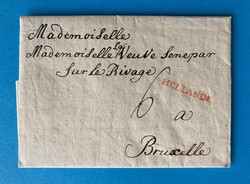 Mademoiselle
Mademoiselle La Veuve Senepar
Sur le Rivage
6 a HOLLANDE
Bruxelle